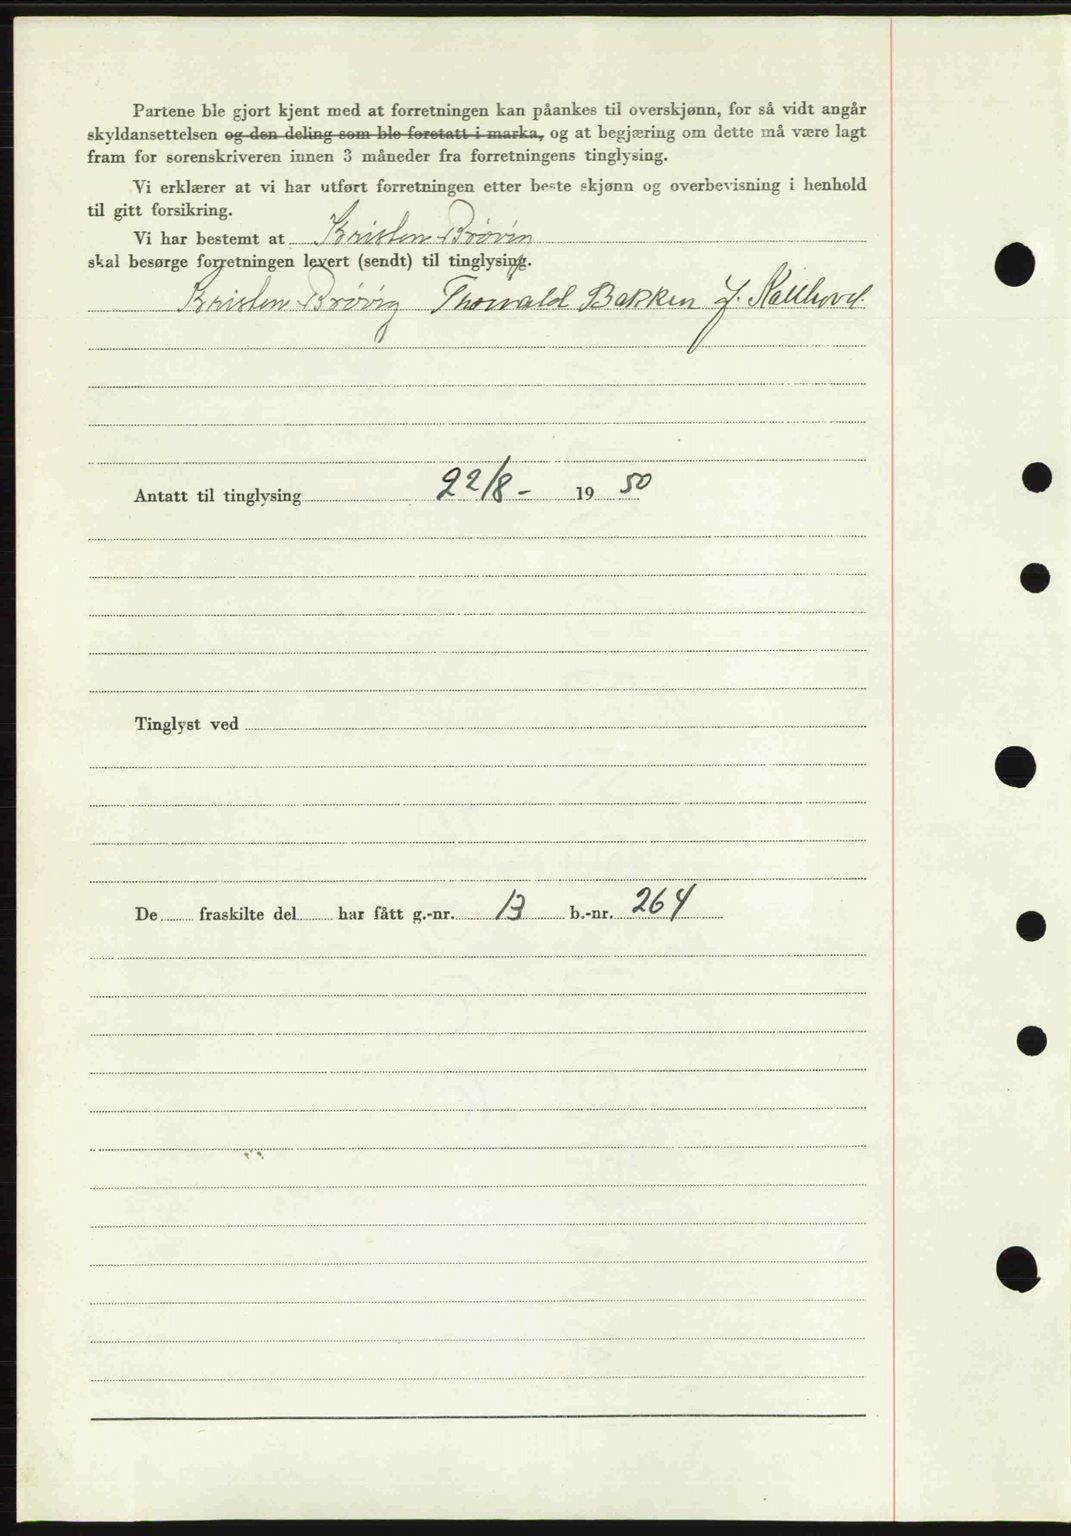 Partene ble gjort kjent med at forretningen kan påankes til overskjønn, for så vidt angår
skyldansettelsen og den deling som ble foretatt i marka, og at begjæring om dette må være lagt
fram for sorenskriveren innen 3 måneder fra forretningens tinglysing.
Vi erklærer at vi har utført forretningen etter beste skjønn og overbevisning i henhold
til gitt forsikring.
Vi har bestemt at Kristen Brøvig
skal besørge forretningen levert (sendt) til tinglysing.
Kristen Brøvig Thorvald Bakken J.
Antatt til tinglysing 22/8- 19 50
Tinglyst ved
De fraskilte del har fått g.-nr. 13 b.-nr. 264